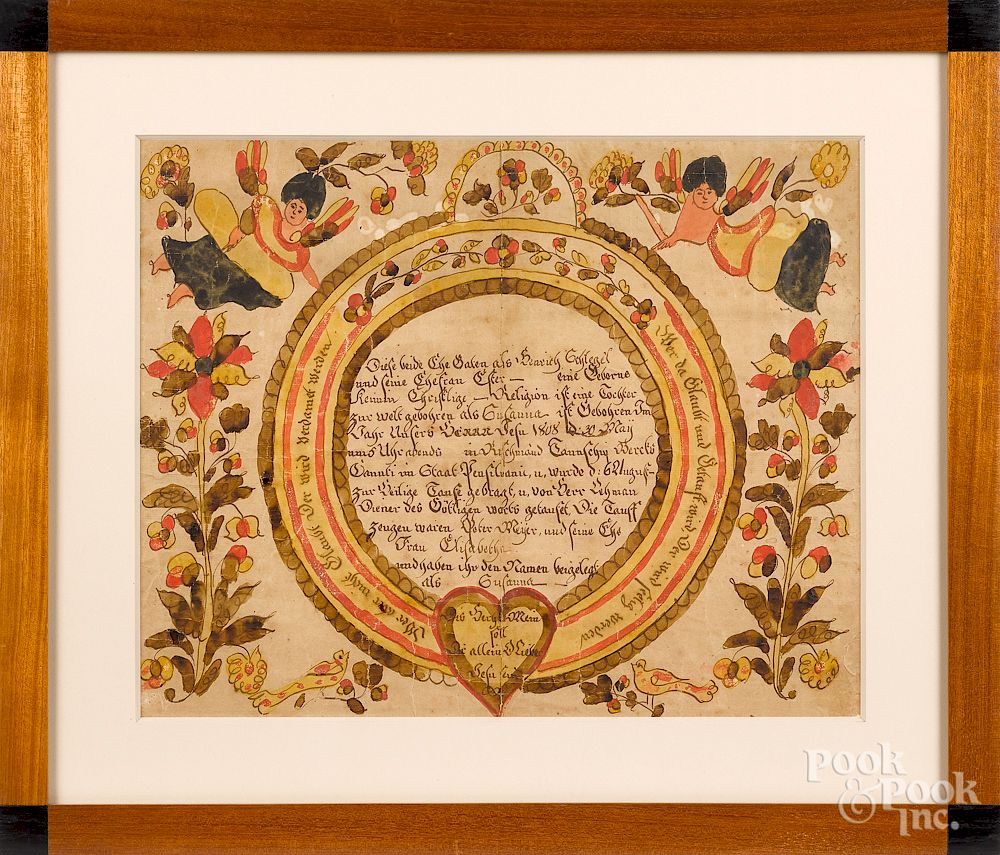 Diese beide Ehe Gaten als Henrich Schlegel
und seine Ehefrau Ester — eine Geborne
Christlige — Religion ist eine Tochter
zur welt gebohren als Susanna ist Gebohren Im
Jahr Unsers HERRN Jesu 1808 May
um 5 Uhr abends in Ritschmand Taunschip Bercks
Caunti im Staat Pensilvani, u, wurde d: 6 August
zur Heilige Taufe gebragt, u, von Herr Lehman
Diener des Göttigen worts getauft, Die Tauff
zeugen waren Peter Meyer, und seine Ehe
Frau Elisabetha
und haben ihr den Namen beygelegt
als Susanna —
Wer da Glaubt und Getauft wird Der wird selig werden
Wer aber nicht Glaubt Der wird Verdamet werden
Dis Hertz Mein
soll
Dir allein O Liebster
Jesu sein
Pook
& Pook
Inc.